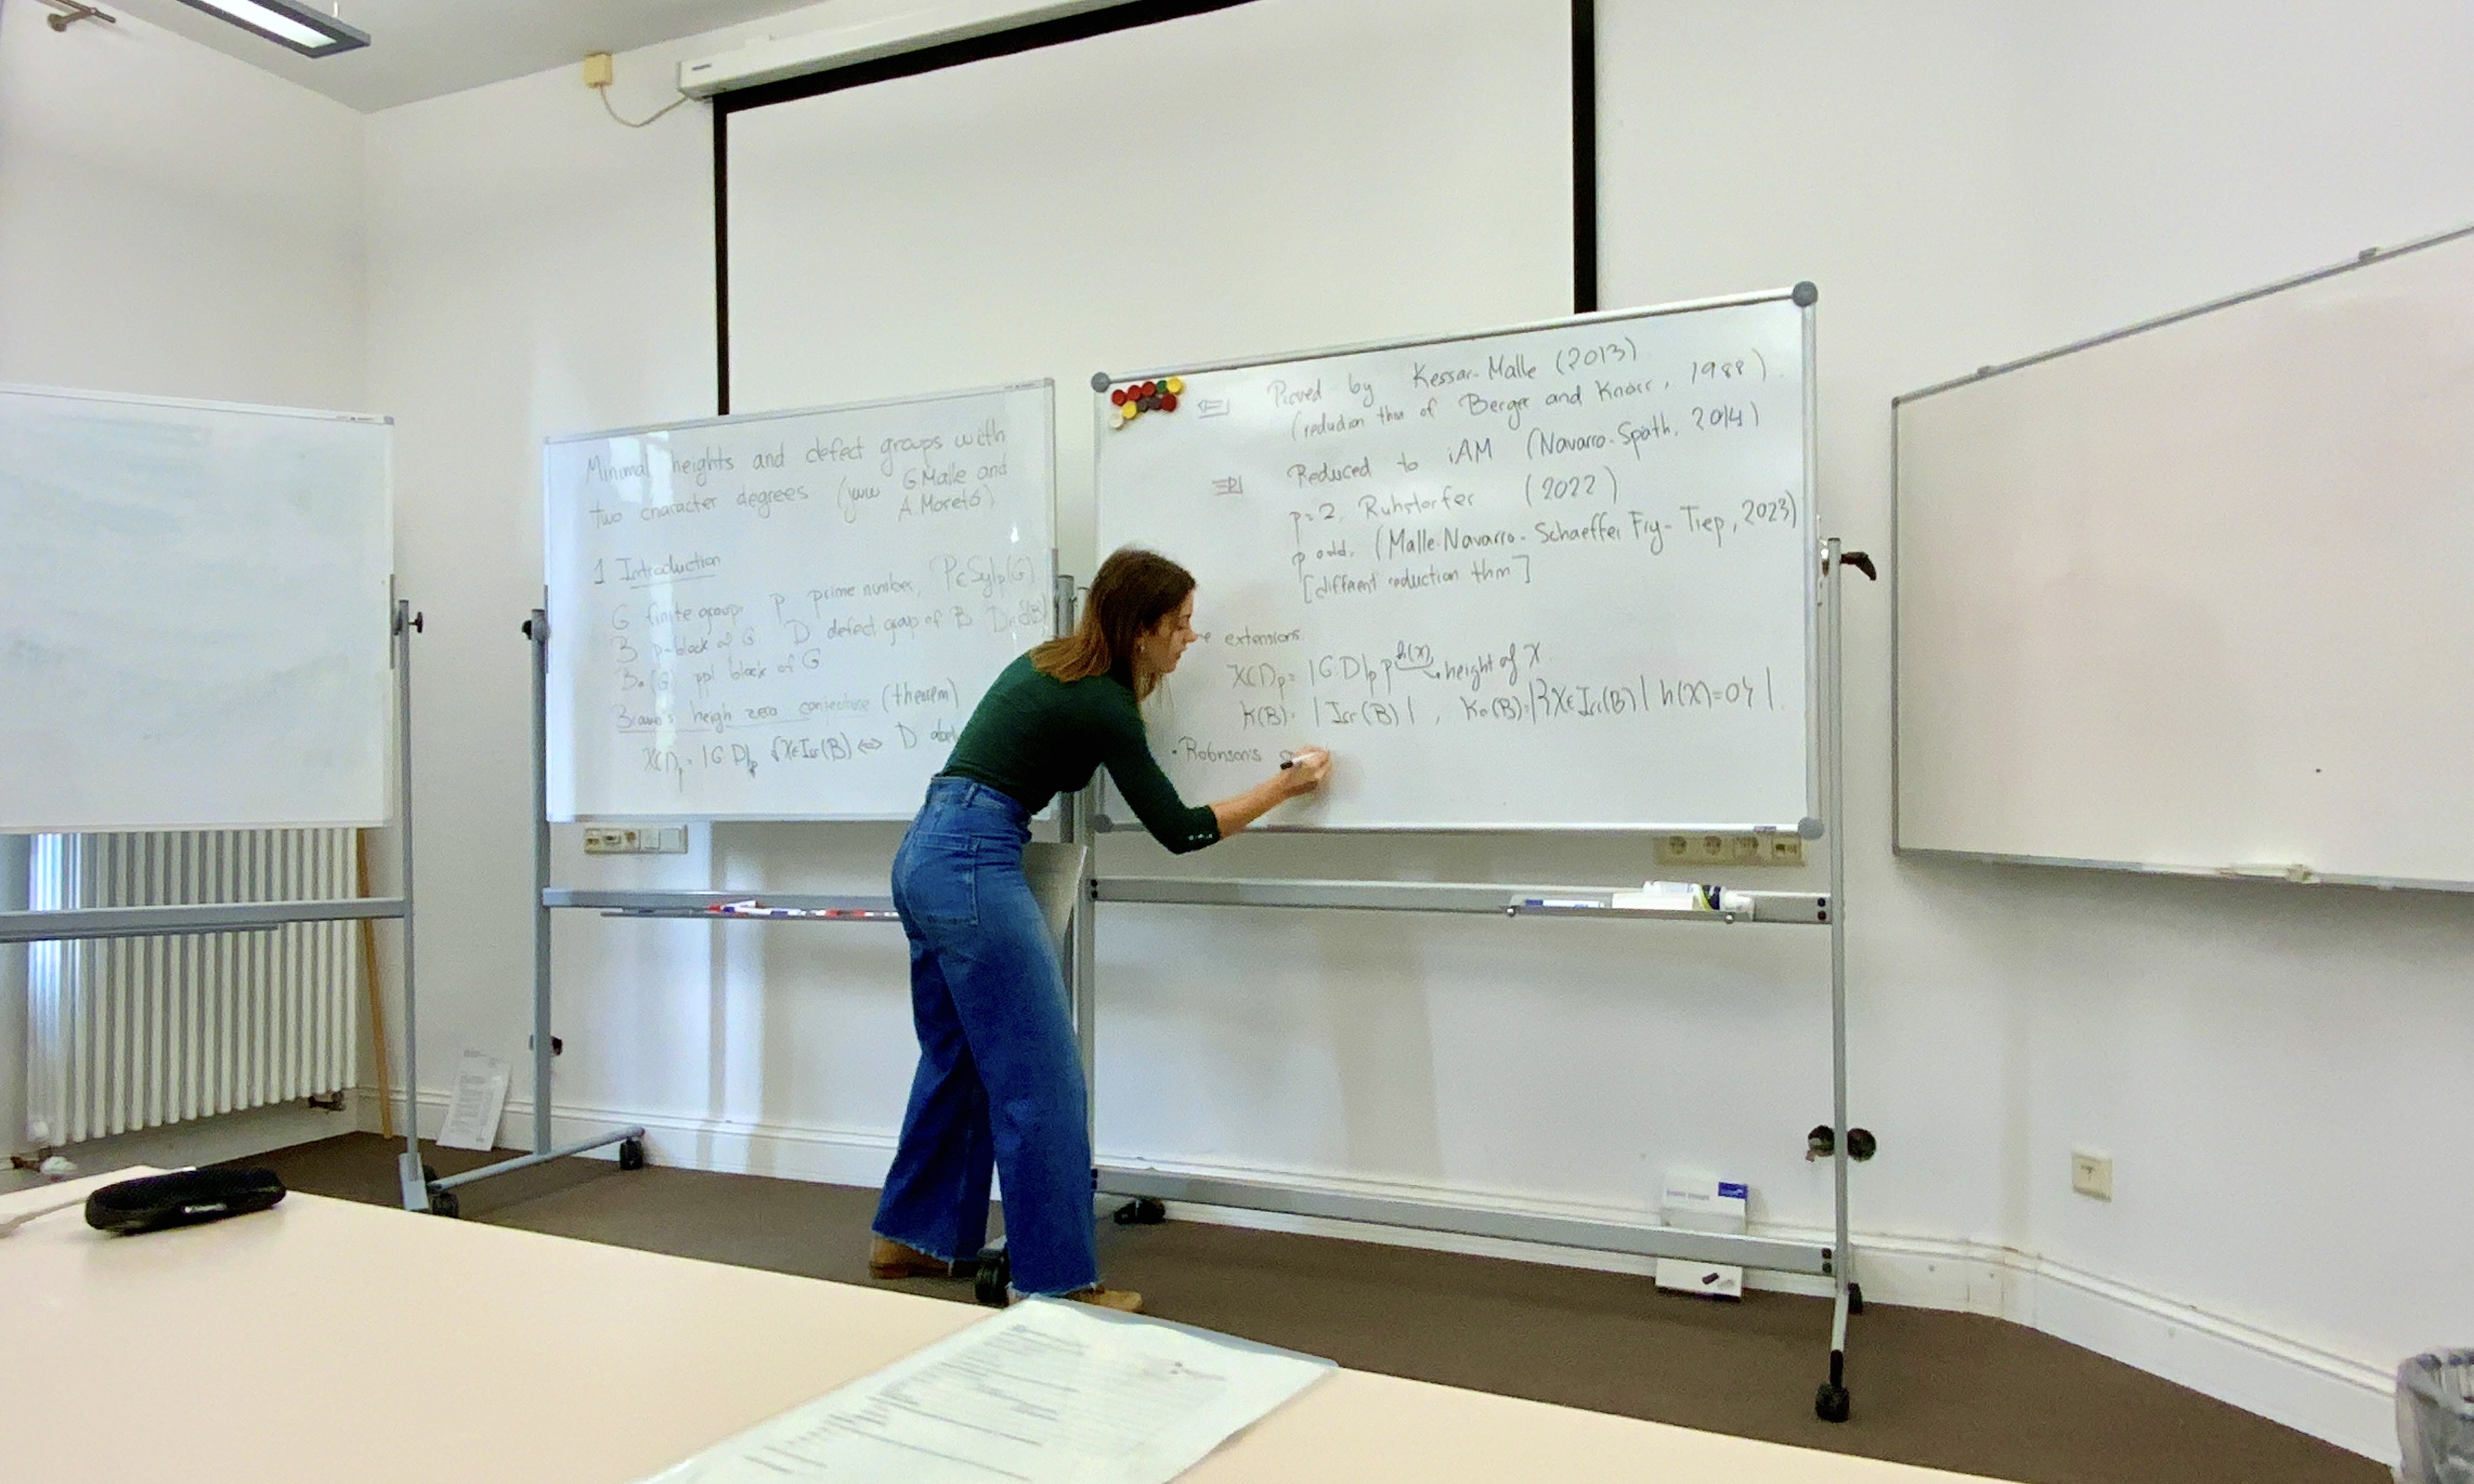 Minimal heights and defect groups with
two character degrees (jww G Malle and
A. Moretó)
1 Introduction
G finite group p prime number, P∈Sylp(G)
B p-block of G D defect group of B
B₀(G) ppl block of G
Brauer's heigh zero conjecture (theorem)
χ(1)ₚ = |G:D|ₚ ∀χ∈Irr(B) ⇔ D abel
⇐ Proved by Kessar-Malle (2013)
(reduction thm of Berger and Knörr, 1988)
⇒ Reduced to iAM (Navarro-Späth, 2014)
p=2, Ruhstorfer (2022)
p odd, (Malle-Navarro-Schaeffer Fry-Tiep, 2023)
[different reduction thm]
extensions
χ(1)ₚ = |G:D|ₚ p^h(χ) → height of χ
K(B) = |Irr(B)|, K₀(B) = |{χ∈Irr(B) | h(χ)=0}|.
• Robinson's